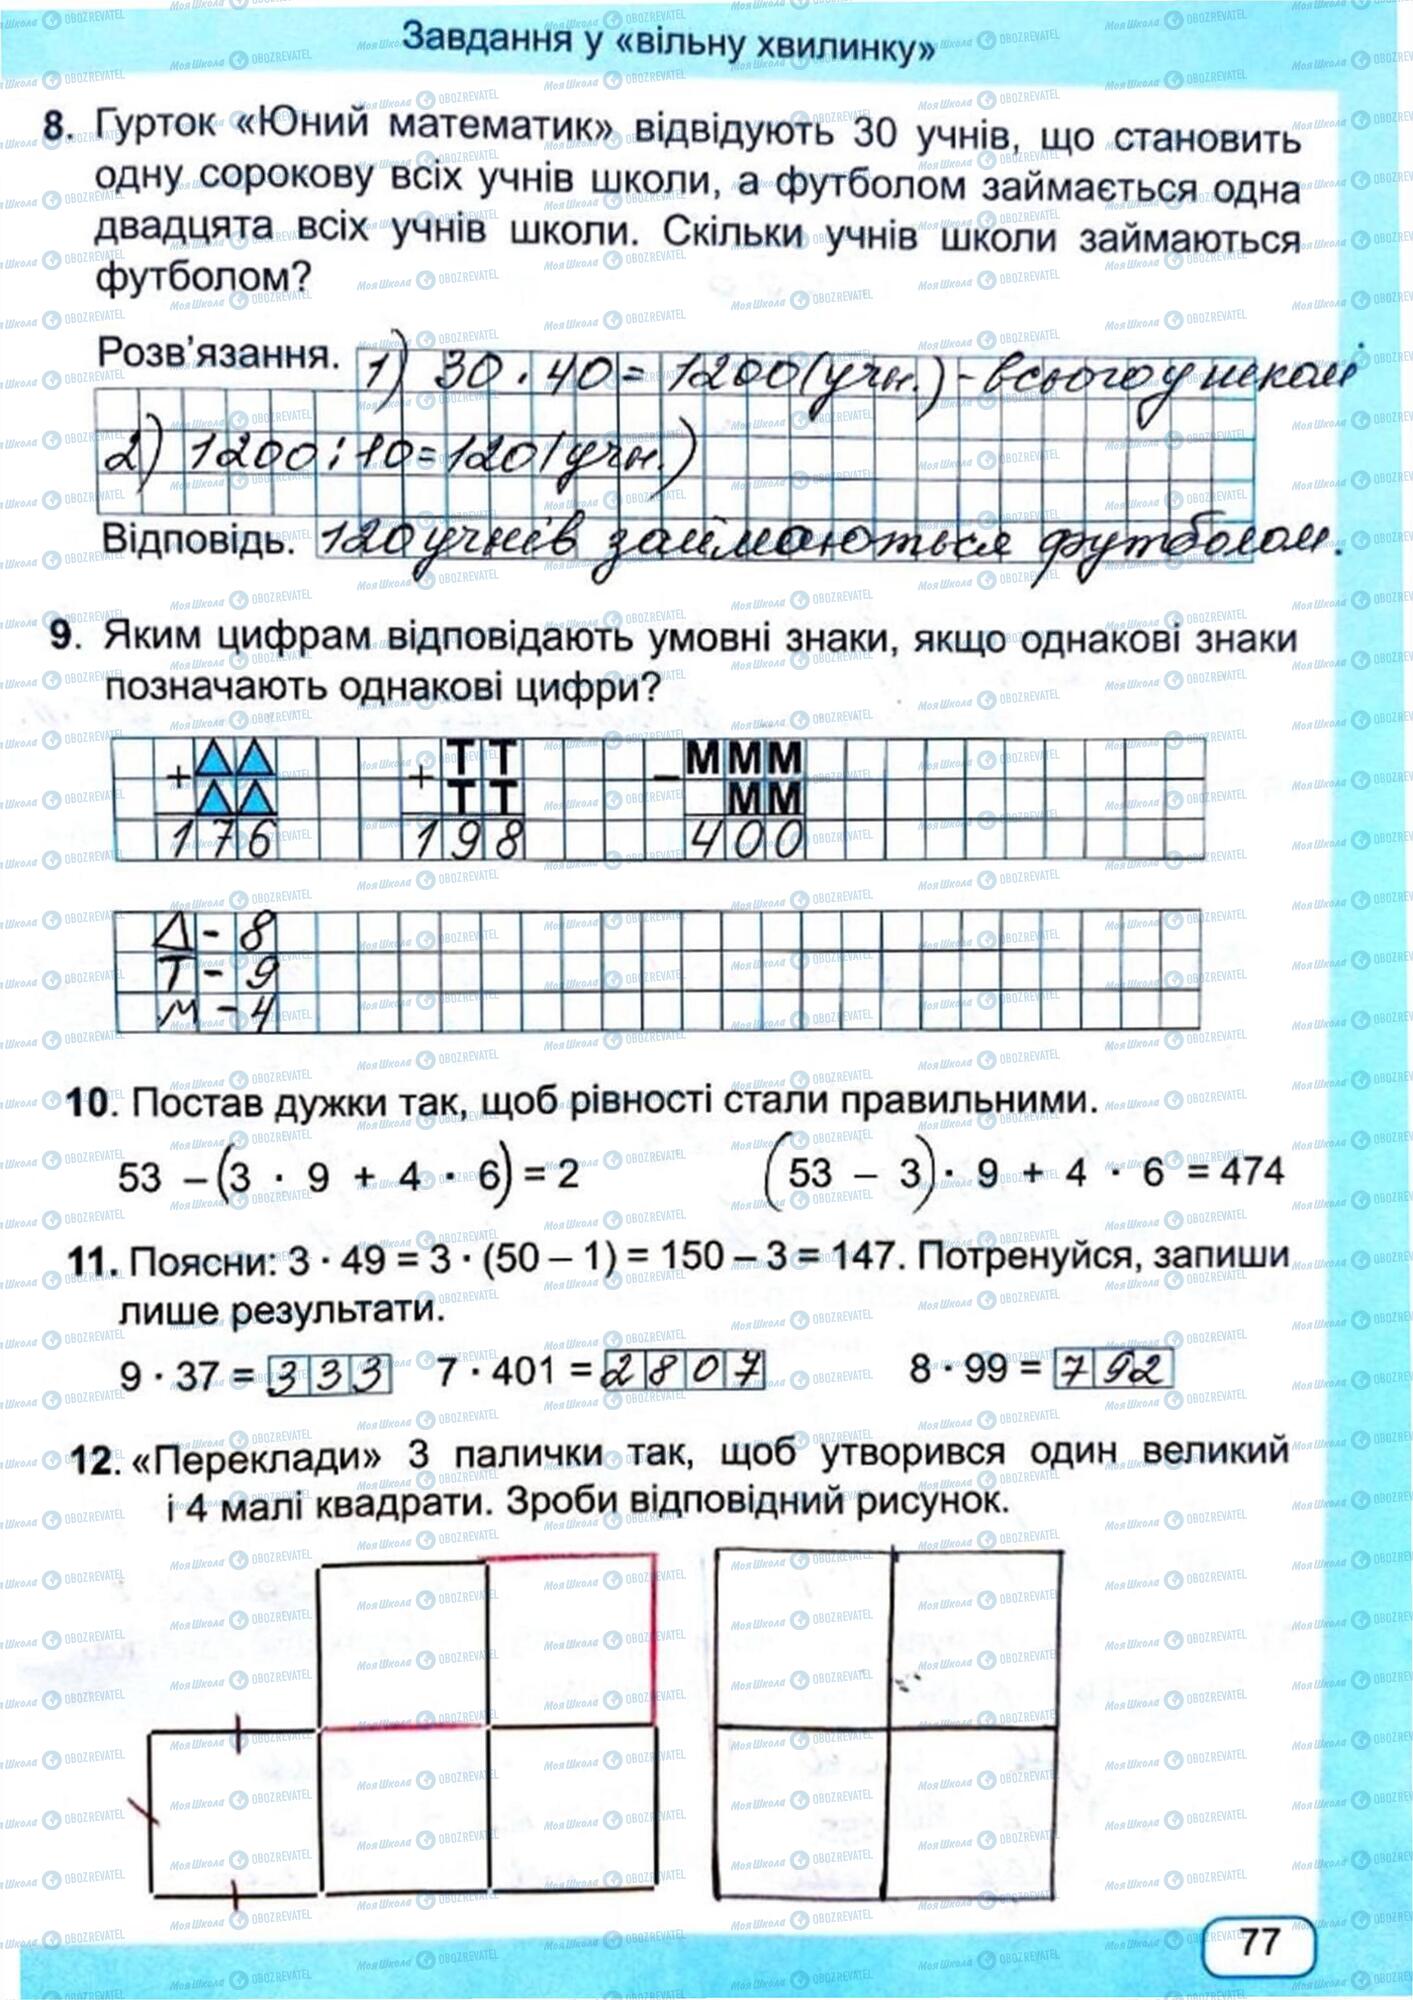 Завдання у «вільну хвилинку»
8. Гурток «Юний математик» відвідують 30 учнів, що становить
одну сорокову всіх учнів школи, а футболом займається одна
двадцята всіх учнів школи. Скільки учнів школи займаються
футболом?
Розв'язання. 1) 30 · 40 = 1200 (учн.) - всього у школі
2) 1200 : 10 = 120 (учн.)
Відповідь. 120 учнів займаються футболом.
9. Яким цифрам відповідають умовні знаки, якщо однакові знаки
позначають однакові цифри?
+ △△ + ТТ − МММ
△△ ТТ ММ
176 198 400
Δ - 8
Т - 9
М - 4
10. Постав дужки так, щоб рівності стали правильними.
53 − (3 · 9 + 4 · 6) = 2 (53 − 3) · 9 + 4 · 6 = 474
11. Поясни: 3 · 49 = 3 · (50 – 1) = 150 – 3 = 147. Потренуйся, запиши
лише результати.
9 · 37 = 333 7 · 401 = 2807 8 · 99 = 792
12. «Переклади» 3 палички так, щоб утворився один великий
і 4 малі квадрати. Зроби відповідний рисунок.
77